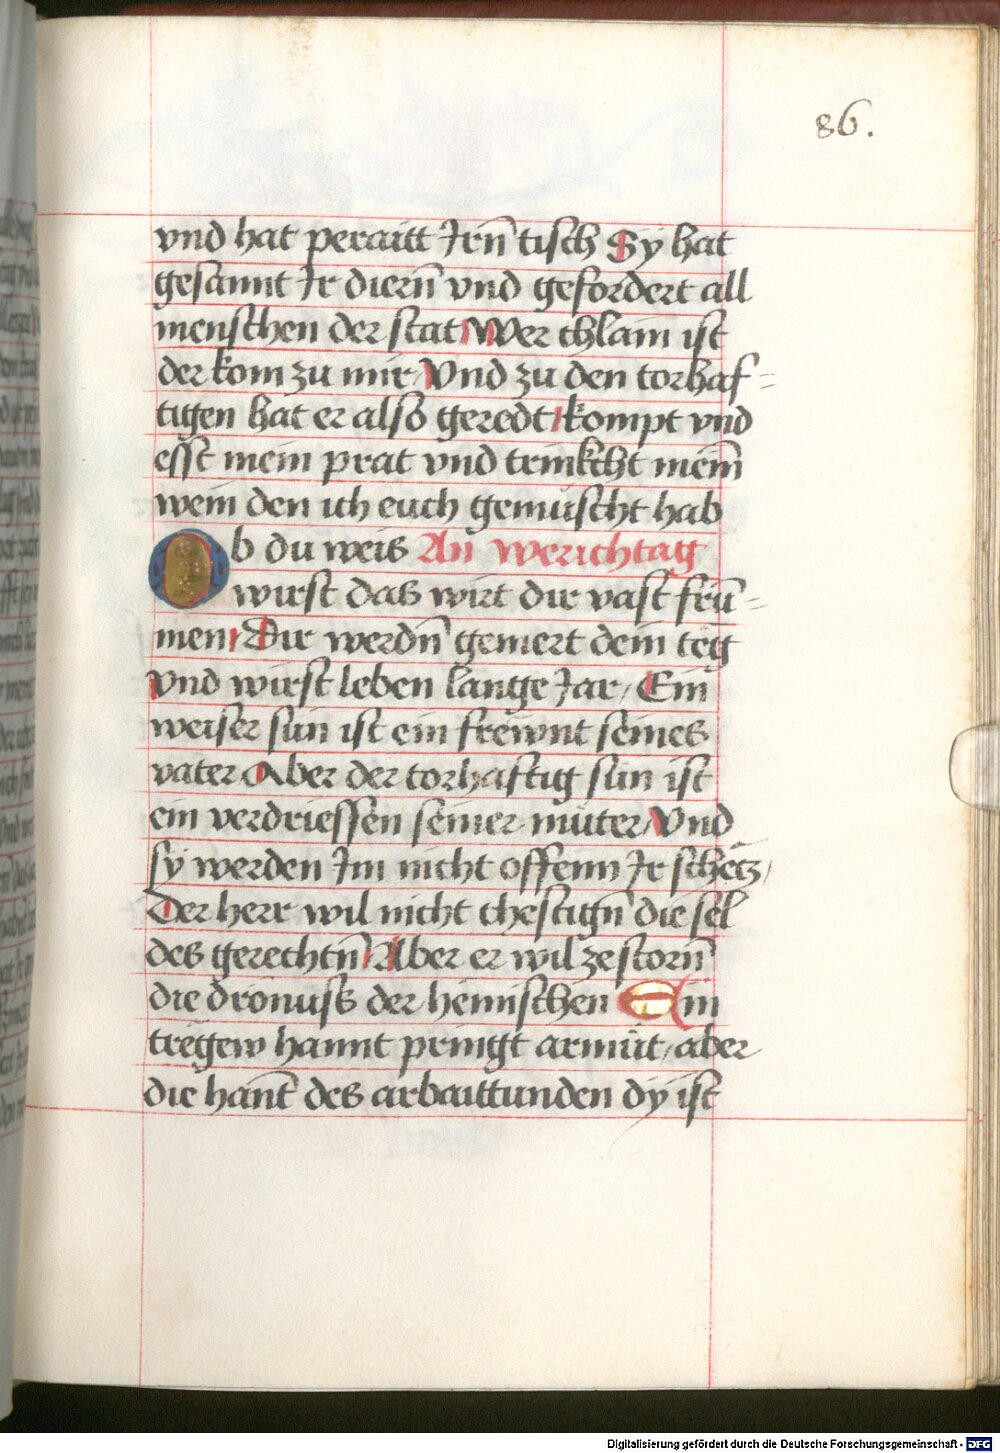 86.
vnd hat peraitt Irn̄ tisch Sy hat
gesannt Ir diern̄ vnd gefordert all
menschen der stat Wer chlain ist
der kom zu mir Vnd zu den torhaf=
tigen hat er also geredt kompt vnd
esst mein prat vnd trinkcht mein̄
wein den ich euch gemischt hab
Ob du weis An werichtag
wirst das wirt dir vast frū=
men Dir werdn̄ gemert dein teg
vnd wirst leben lange Jar / Ein
weiser sun ist ein frewnt seines
vater Aber der torhaftig sun ist
ein verdriessen seiner muter Vnd
sy werden Im nicht offenn Ir schetz /
Der herr wil nicht chestign̄ die sel
des gerechtn̄ Aber er wil zestorn̄
die dronuss der heimischen Ein
tregew hannt pringt armut / aber
die han̄t des arbaittunden dy ist
Digitalisierung gefördert durch die Deutsche Forschungsgemeinschaft - DFG